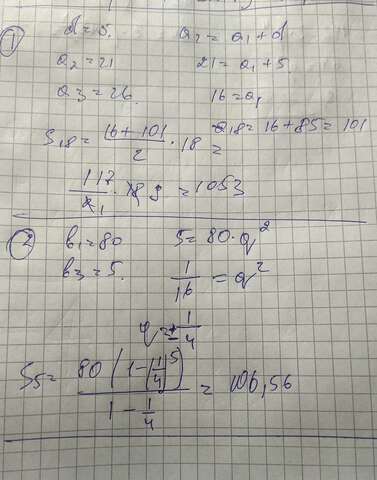 1
d=5. a2 = a1 + d
a2=21 21= a1+5
a3=26. 16=a1
S18= (16+101)/2 · 18 = a18=16+85=101
117/2 1 · 18 9 =1053
2 b1=80 5=80·q^2
b3=5. 1/16 = q^2
q=±1/4
S5= 80(1-(1/4)^5)/(1-1/4) = 106,56